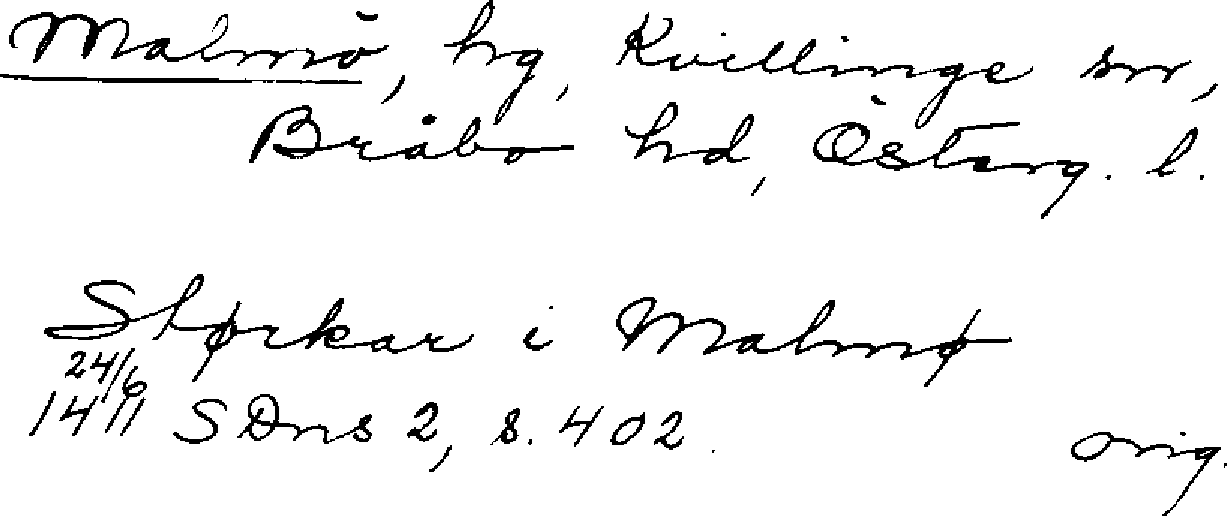 Malmö, hg, Kvillinge sn,
Bråbo hd, Österg. l.
Størkar i Malmø
24/6
1411 SDns 2, s. 402.
orig.